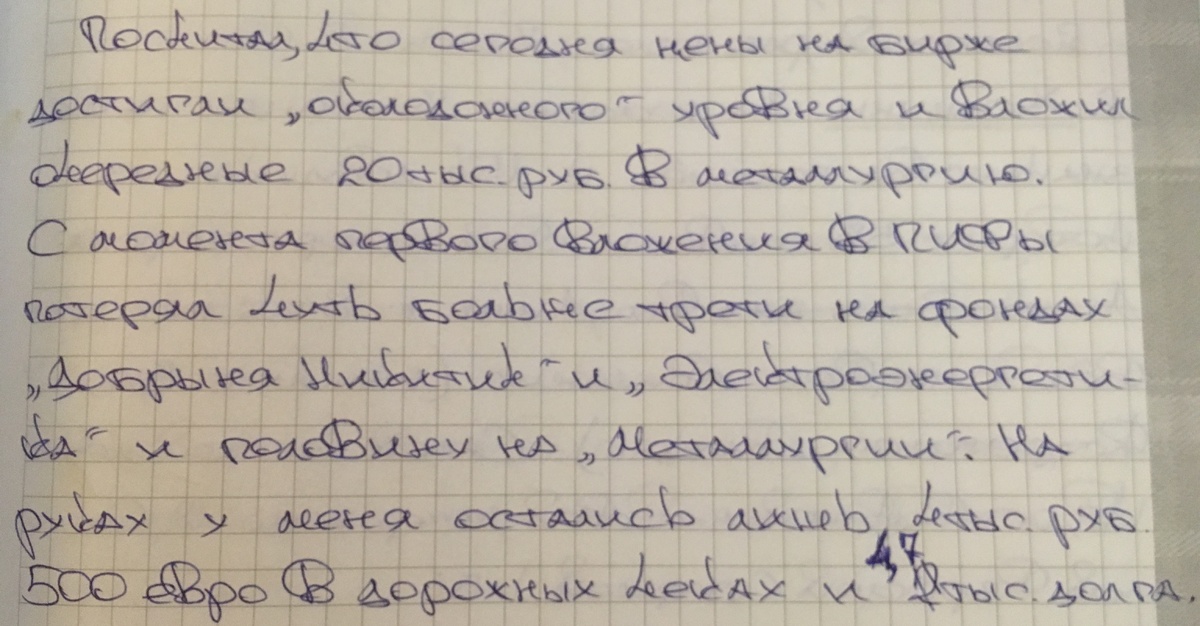 Посчитал, что сегодня цены на бирже
достигли „околодонного“ уровня и вложил
очередные 20 тыс. руб. в металлургию.
С момента первого вложения в ПИФы
потерял чуть больше трети на фондах
„Добрыня Никитич“ и „Электроэнергети-
ка“ и половину на „Металлургии“. На
руках у меня остались лишь 4 тыс. руб.
500 евро в дорожных чеках и 4,7 тыс. долга.